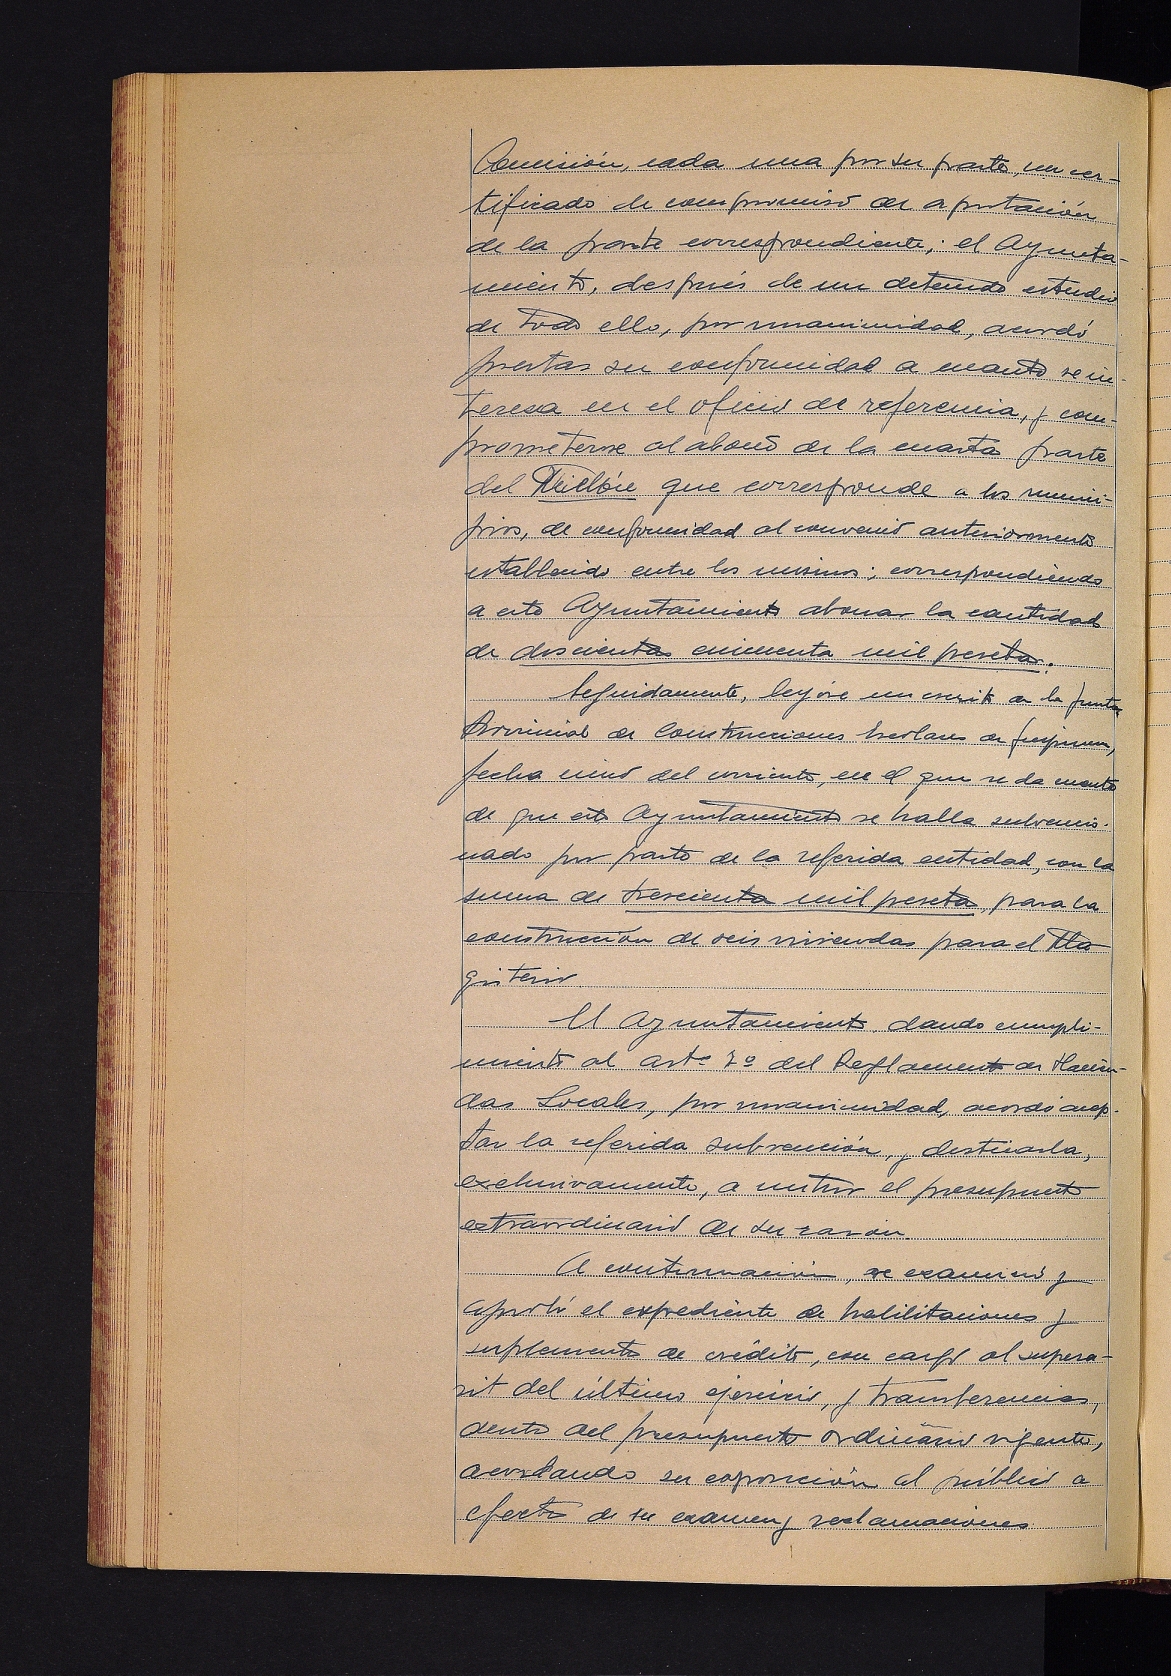 Comisión, cada una por su parte, un cer-
tificado de compromiso de aportación
de la parte correspondiente; el Ayunta-
miento, después de un detenido estudio
de todo ello, por unanimidad, acordó
prestar su conformidad a cuanto se in-
teresa en el oficio de referencia, y com-
prometerse al abono de la cuarta parte
del Millón que corresponde a los munici-
pios, de conformidad al convenio anteriormente
establecido entre los mismos; correspondiendo
a este Ayuntamiento abonar la cantidad
de doscientas cincuenta mil pesetas.
Seguidamente, leyóse un escrito de la Junta
Provincial de Construcciones Escolares de
fecha cinco del corriente, en el que se da cuenta
de que este Ayuntamiento se halla subvencio-
nado por parte de la referida entidad, con la
suma de trescientas mil pesetas, para la
construcción de seis viviendas para el Ma
gisterio.
El Ayuntamiento, dando cumpli-
miento al artº 7º del Reglamento de Hacien-
das Locales, por unanimidad, acordó acep-
tar la referida subvención, y destinarla,
exclusivamente, a nutrir el presupuesto
extraordinario de su razón.
A continuación, se examinó y
aprobó el expediente de habilitaciones y
suplemento de crédito, con cargo al supera-
vit del último ejercicio, y transferencias,
dento del presupuesto ordinario vigente,
acordando su exposición al público a
efectos de su examen y reclamaciones